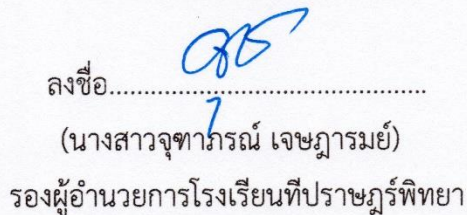 ลงชื่อ................................................
(นางสาวจุฑาภรณ์ เจษฎารมย์)
รองผู้อำนวยการโรงเรียนทีปราษฎร์พิทยา